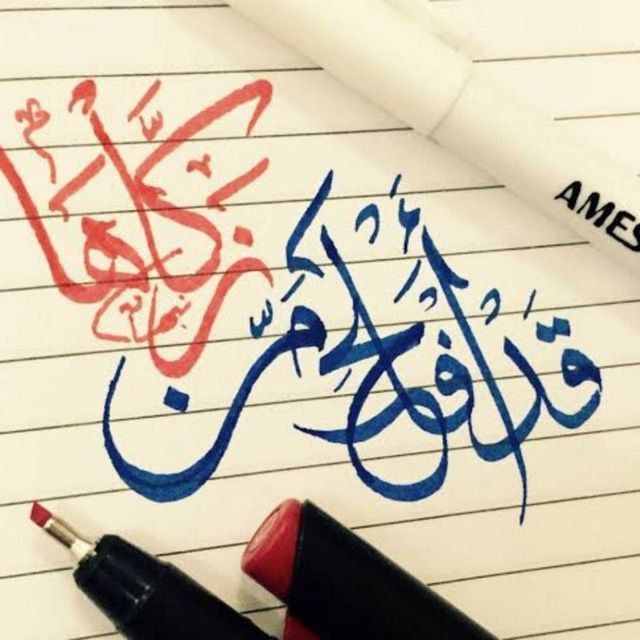 قَدْ أَفْلَحَ مَنْ
زَكَّاهَا
AMES